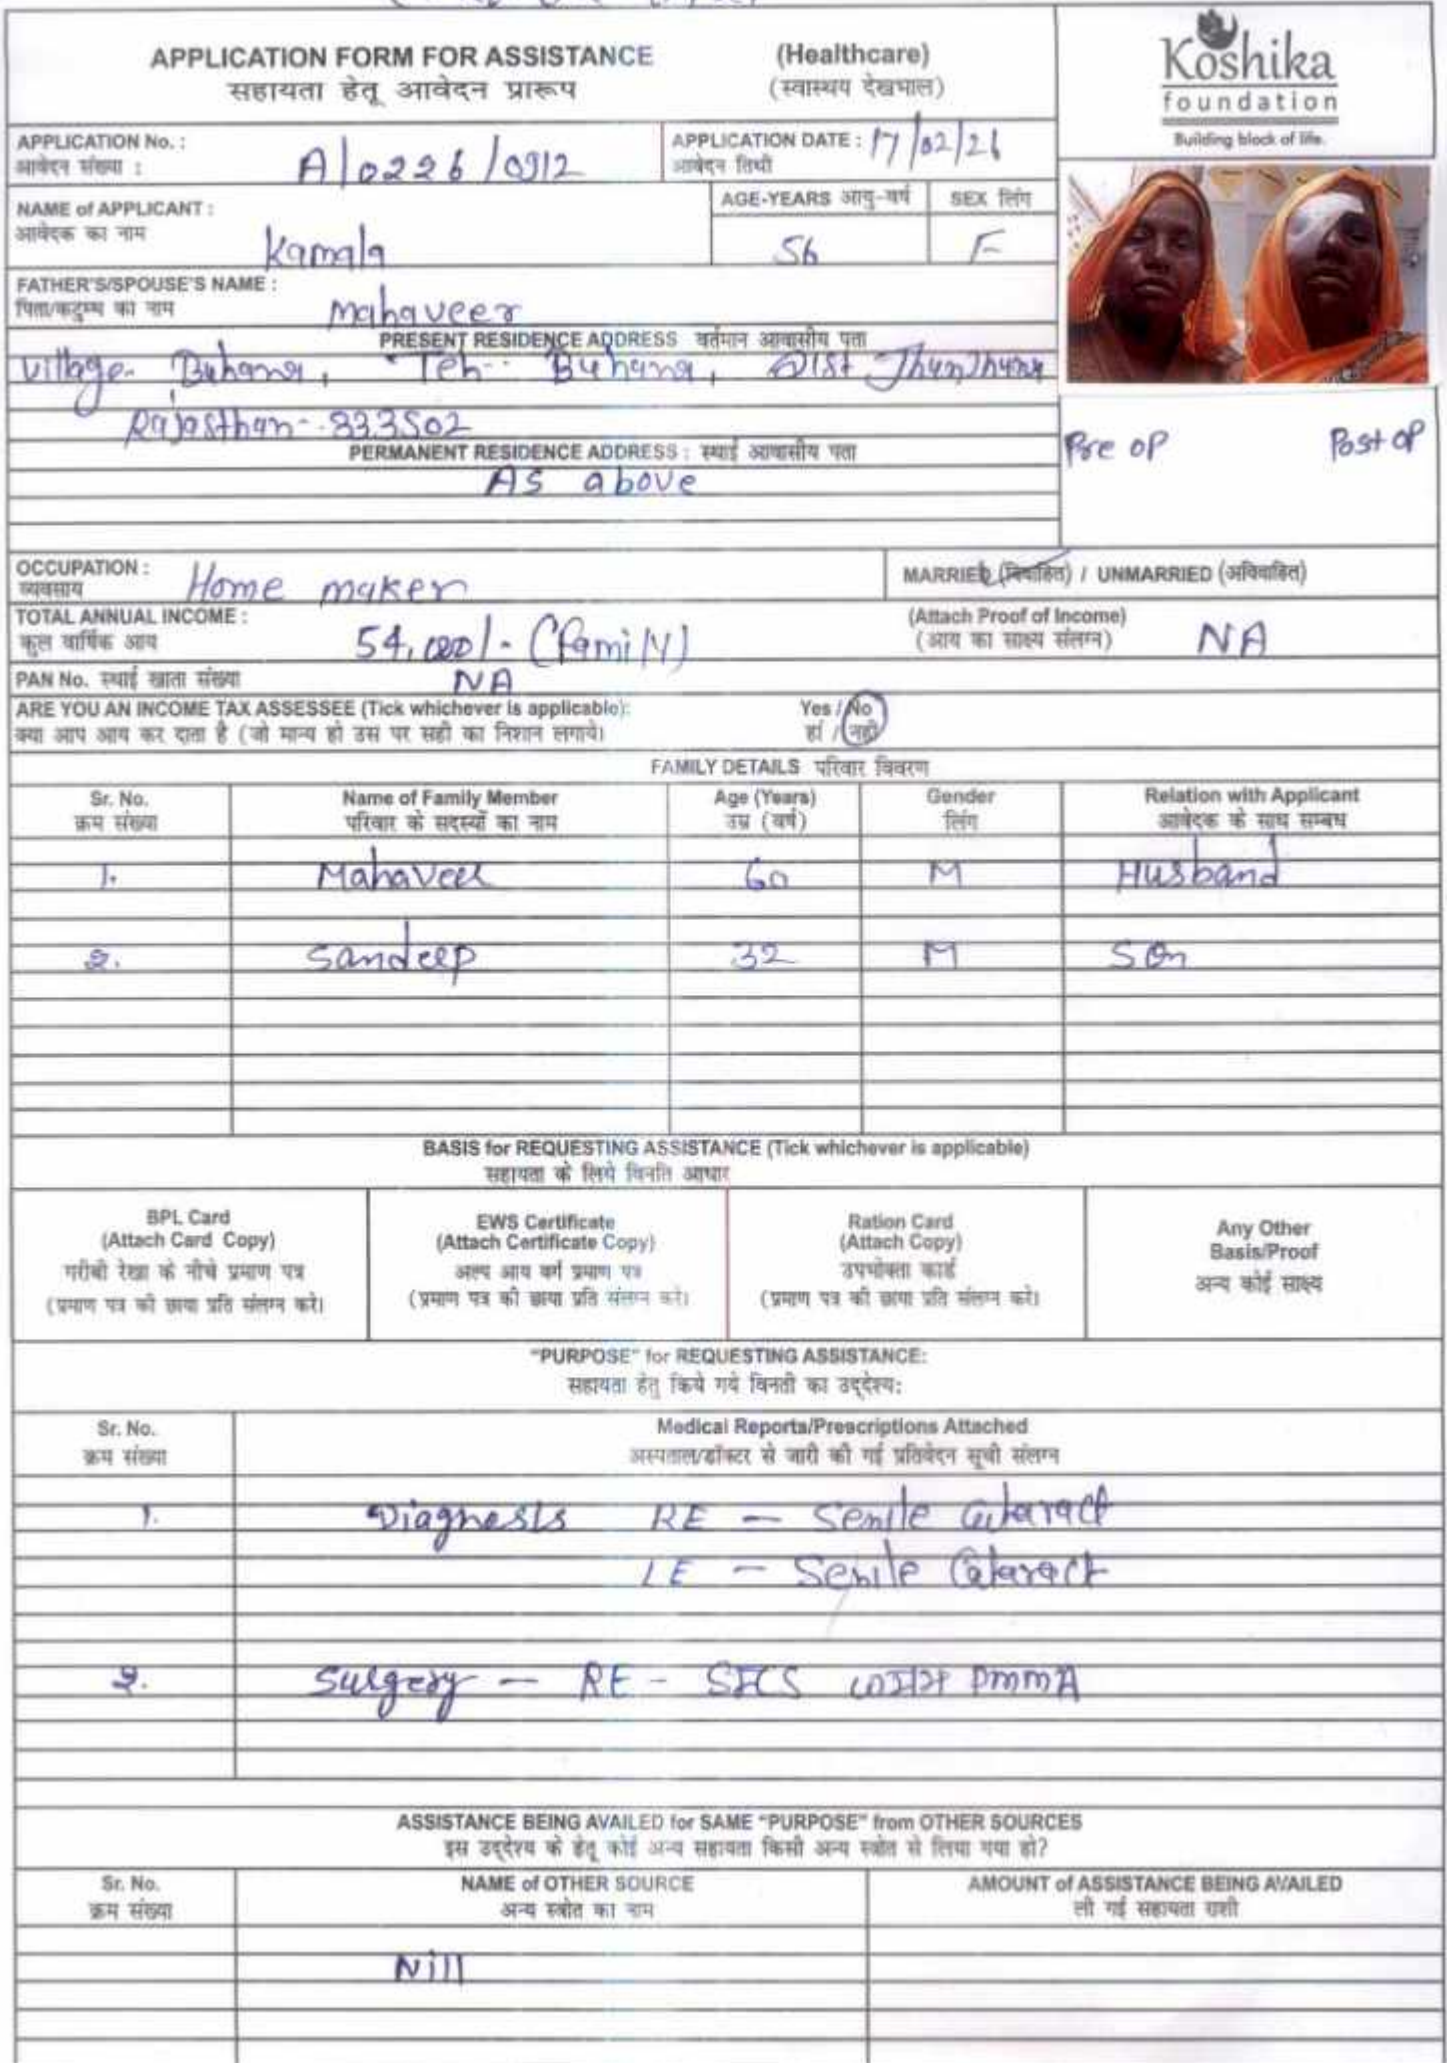 APPLICATION FORM FOR ASSISTANCE (Healthcare)
सहायता हेतू आवेदन प्रारूप (स्वास्थय देखभाल)
Koshika
foundation
Building block of life.
APPLICATION No. : A/0226/0912
आवेदन संख्या :
APPLICATION DATE : 17/02/26
आवेदन तिथी
NAME of APPLICANT : Kamala
आवेदक का नाम
AGE-YEARS आयु-वर्ष 56
SEX लिंग F
FATHER'S/SPOUSE'S NAME : Mahaveer
पिता/कटुम्ब का नाम
PRESENT RESIDENCE ADDRESS वर्तमान आवासीय पता
Village- Buhana, Teh- Buhana, Dist Jhunjhunu
Rajasthan- 333502
PERMANENT RESIDENCE ADDRESS : स्थाई आवासीय पता
As above
Pre op Post op
OCCUPATION : Home maker
व्यवसाय
MARRIED (विवाहित) / UNMARRIED (अविवाहित)
TOTAL ANNUAL INCOME : 54,000/- (Family)
कुल वार्षिक आय
(Attach Proof of Income) NA
(आय का साक्ष्य संलग्न)
PAN No. स्थाई खाता संख्या NA
ARE YOU AN INCOME TAX ASSESSEE (Tick whichever is applicable): Yes / No
क्या आप आय कर दाता है (जो मान्य हो उस पर सही का निशान लगाये। हां / नहीं
FAMILY DETAILS परिवार विवरण
Sr. No. Name of Family Member Age (Years) Gender Relation with Applicant
क्रम संख्या परिवार के सदस्यों का नाम उम्र (वर्ष) लिंग आवेदक के साथ सम्बध
1. Mahaveer 60 M Husband
2. Sandeep 32 M Son
BASIS for REQUESTING ASSISTANCE (Tick whichever is applicable)
सहायता के लिये विनति आधार
BPL Card
(Attach Card Copy)
गरीबी रेखा के नीचे प्रमाण पत्र
(प्रमाण पत्र की छाया प्रति संलग्न करे।
EWS Certificate
(Attach Certificate Copy)
अल्प आय वर्ग प्रमाण पत्र
(प्रमाण पत्र की छाया प्रति संलग्न करे।
Ration Card
(Attach Copy)
उपभोक्ता कार्ड
(प्रमाण पत्र की छाया प्रति संलग्न करे।
Any Other
Basis/Proof
अन्य कोई साक्ष्य
"PURPOSE" for REQUESTING ASSISTANCE:
सहायता हेतु किये गये विनती का उद्देश्य:
Sr. No. Medical Reports/Prescriptions Attached
क्रम संख्या अस्पताल/डॉक्टर से जारी की गई प्रतिवेदन सूची संलग्न
1. Diagnosis RE - Senile Cataract
LE - Senile Cataract
2. Surgery - RE - SICS PMMA
ASSISTANCE BEING AVAILED for SAME "PURPOSE" from OTHER SOURCES
इस उद्देश्य के हेतू कोई अन्य सहायता किसी अन्य स्त्रोत से लिया गया हो?
Sr. No. NAME of OTHER SOURCE AMOUNT of ASSISTANCE BEING AVAILED
क्रम संख्या अन्य स्त्रोत का नाम ली गई सहायता राशी
Nill